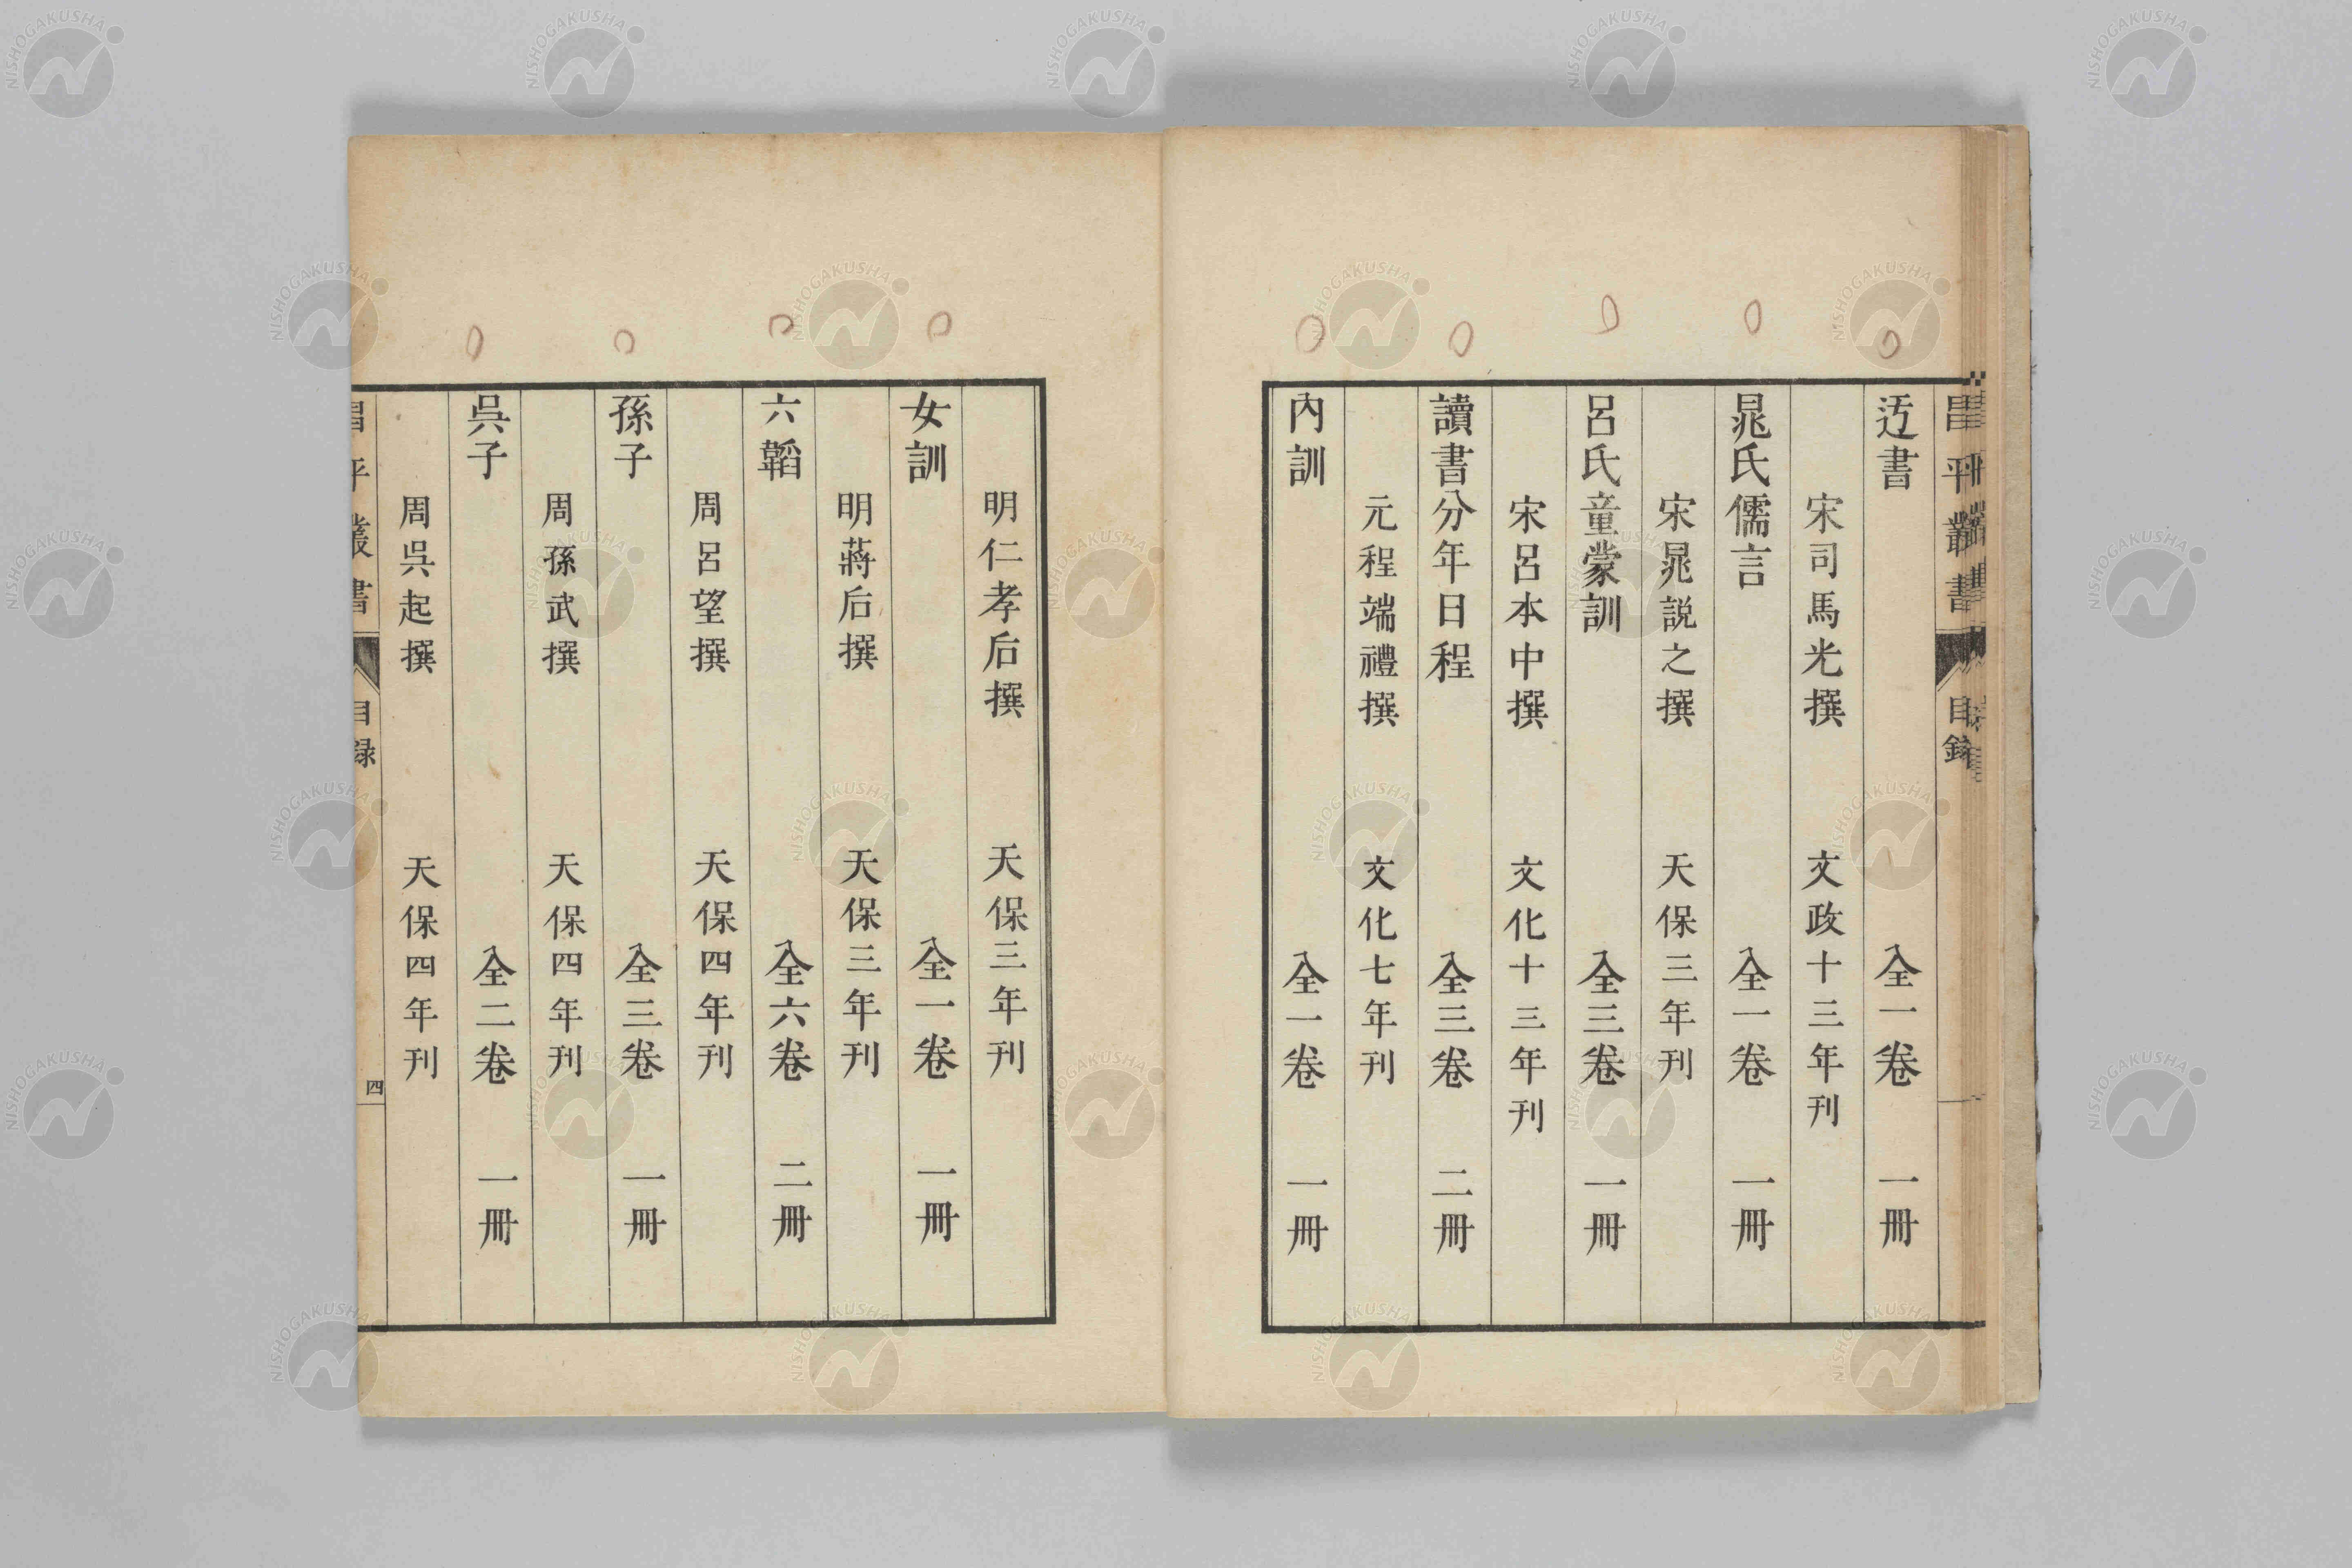 昌平叢書 目錄
迃書 全一卷 一冊
宋司馬光撰 文政十三年刊
晁氏儒言 全一卷 一冊
宋晁説之撰 天保三年刊
呂氏童蒙訓 全三卷 一冊
宋呂本中撰 文化十三年刊
讀書分年日程 全三卷 二冊
元程端禮撰 文化七年刊
內訓 全一卷 一冊
明仁孝后撰 天保三年刊
女訓 全一卷 一冊
明蔣后撰 天保三年刊
六韜 全六卷 二冊
周呂望撰 天保四年刊
孫子 全三卷 一冊
周孫武撰 天保四年刊
吳子 全二卷 一冊
周吳起撰 天保四年刊
昌平叢書 目錄 四
NISHOGAKUSHA